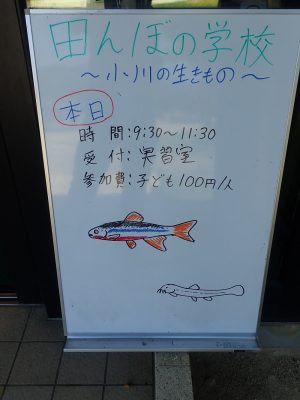 田んぼの学校
～小川の生きもの～
本日
時間:9:30～11:30
受付:実習室
参加費:子ども100円/人